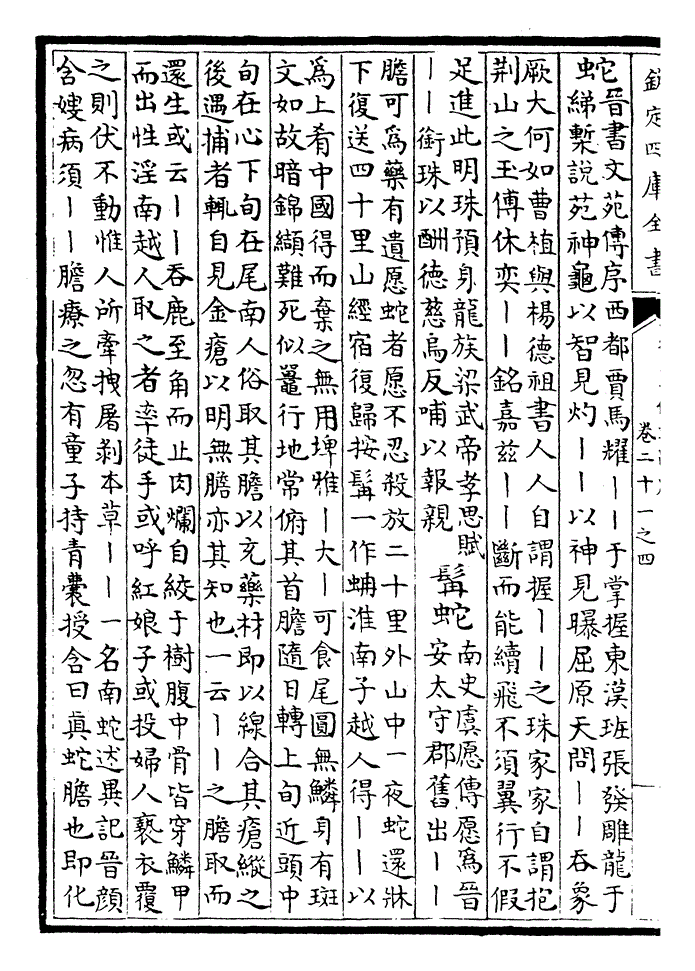 欽定四庫全書
卷二十一之四
蛇
晉書文苑傳序西都賈馬耀丨丨于掌握東漢班張發雕龍于
綈槧說苑神龜以智見灼丨丨以神見曝屈原天問丨丨吞象
厥大何如曹植與楊德祖書人人自謂握丨丨之珠家家自謂抱
荆山之玉傅休奕丨丨銘嘉兹丨丨斷而能續飛不須翼行不假
足進此明珠預身龍族梁武帝孝思賦
丨丨銜珠以酬德慈烏反哺以報親
髯蛇
南史虞愿傳愿爲晉
安太守郡舊出丨丨
膽可爲藥有遺愿蛇者愿不忍殺放二十里外山中一夜蛇還牀
下復送四十里山經宿復歸按髯一作蚺淮南子越人得丨丨以
爲上肴中國得而棄之無用埤雅丨大丨可食尾圓無鱗身有斑
文如故暗錦纈難死似鼉行地常俯其首膽隨日轉上旬近頭中
旬在心下旬在尾南人俗取其膽以充藥材即以線合其瘡縱之
後遇捕者輒自見金瘡以明無膽亦其知也一云丨丨之膽取而
還生或云丨丨吞鹿至角而止肉爛自絞于樹腹中骨皆穿鱗甲
而出性淫南越人取之者率徒手或呼紅娘子或投婦人褻衣覆
之則伏不動惟人所牽拽屠剥本草丨丨一名南蛇述異記晉顔
含嫂病須丨丨膽療之忽有童子持青囊授含曰眞蛇膽也即化